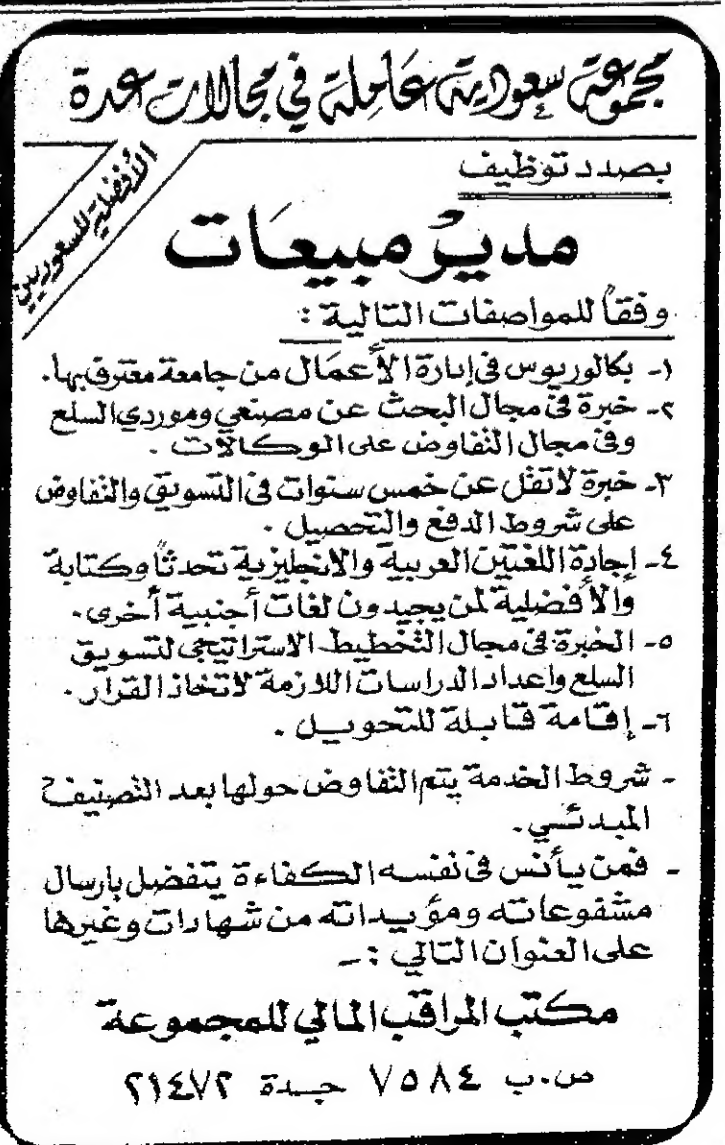 مجموعة سعودية عاملة في مجالات عدة
الأفضلية للسعوديين
بصدد توظيف
مدير مبيعات
وفقاً للمواصفات التالية :
١- بكالوريوس في إدارة الأعمال من جامعة معترف بها.
٢- خبرة في مجال البحث عن مصنعي وموردي السلع
وفي مجال التفاوض على الوكالات .
٣- خبرة لاتقل عن خمس سنوات في التسويق والتفاوض
على شروط الدفع والتحصيل .
٤- إجادة اللغتين العربية والانجليزية تحدثاً وكتابة
والأفضلية لمن يجيدون لغات أجنبية أخرى.
٥- الخبرة في مجال التخطيط الاستراتيجي لتسويق
السلع واعداد الدراسات اللازمة لاتخاذ القرار.
٦- إقامة قابلة للتحويل .
- شروط الخدمة يتم التفاوض حولها بعد التصنيف
المبدئي.
- فمن يأنس في نفسه الكفاءة يتفضل بإرسال
مشفوعاته ومؤيداته من شهادات وغيرها
على العنوان التالي :-
مكتب المراقب المالي للمجموعة
ص.ب ٧٥٨٤ جدة ٢١٤٧٢